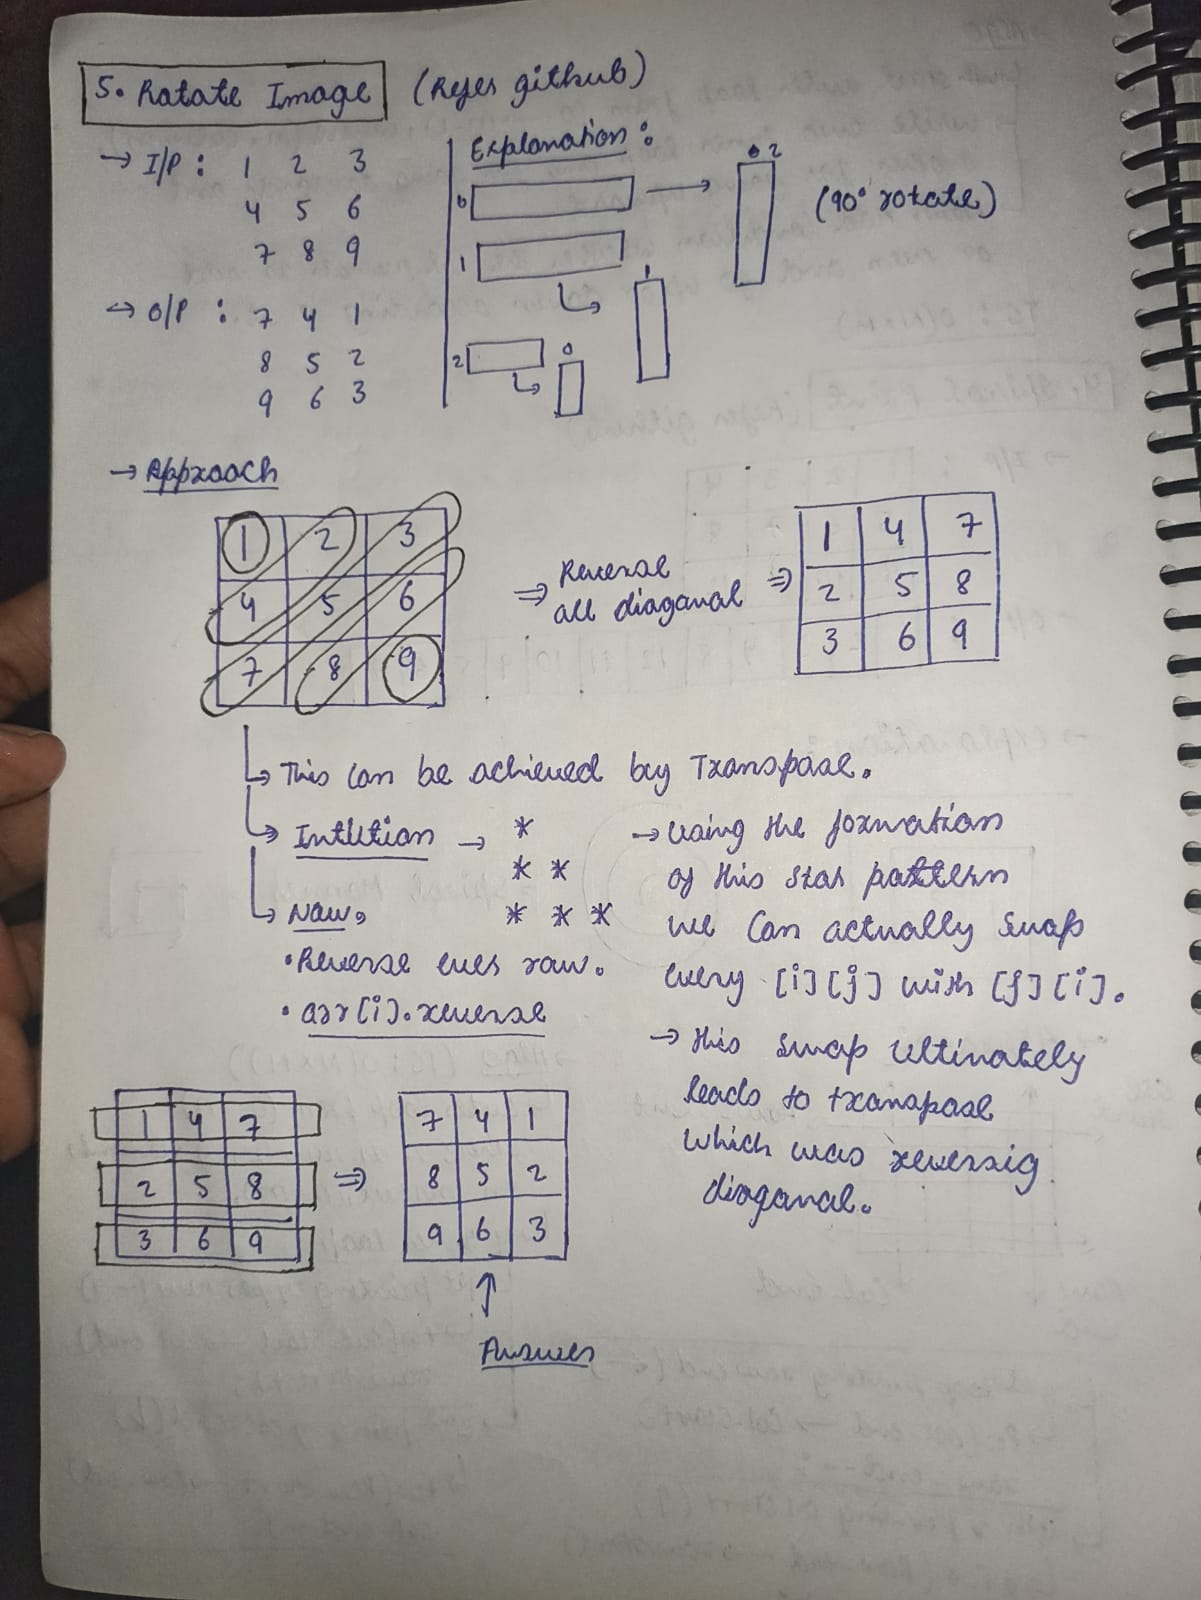 5. Rotate Image (Refer github)
→ I/P : 1 2 3
4 5 6
7 8 9
→ O/P : 7 4 1
8 5 2
9 6 3
Explanation :
0 → 2
(90° rotate)
1 1
2 0
→ Approach
1 2 3
4 5 6
7 8 9
⇒ Reversal
all diaganal ⇒
1 4 7
2 5 8
3 6 9
↳ This can be achieved by Transpose.
↳ Intution → *
* *
* * *
→ Using the formation
of this star pattern
we can actually swap
every [i][j] with [j][i].
→ this swap Ultinately
leads to transpose
which was reversig
diaganal.
↳ Now,
• Reverse ever row.
• arr[i].reverse
1 4 7
2 5 8
3 6 9
⇒
7 4 1
8 5 2
9 6 3
↑
Answer